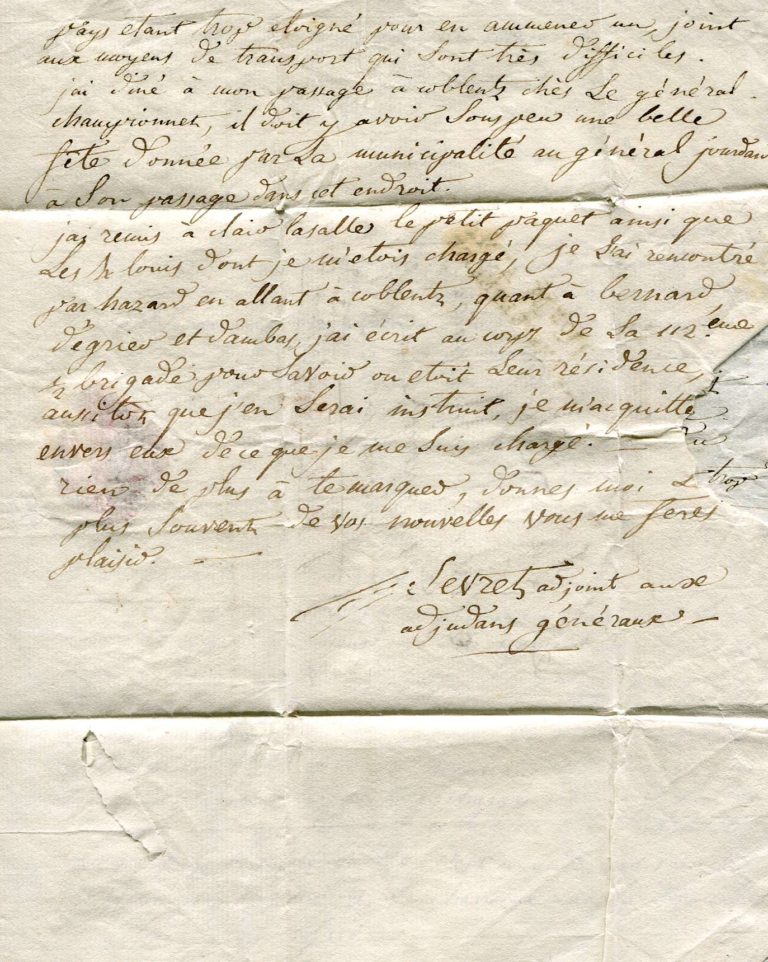 pays etant trop eloigné pour en ammener un, joint
aux moyens de transport qui sont très difficiles.
jai diné à mon passage à coblentz chès Le général
championnet, il doit y avoir Sous peu une belle
fète donnée par La municipalité au général jourdan
à Son passage dans cet endroit.
jai remis à clair lasalle le petit paquet ainsi que
Les 4 louis dont je m'etois chargé, je L'ai rencontré
par hazard en allant à coblentz, quant à bernard
degrier et dambas, j'ai écrit au corps de La 112.eme
1/2 brigade pour savoir ou etoit Leur résidence,
aussitot que j'en Serai instruit, je m'acquitte
envers eux de ce que je me Suis chargé.
rien de plus à te marquer, donnes moi
trop
plus Souvent de vos nouvelles vous me ferés
plaisir.
Levret adjoint aux
adjudans généraux